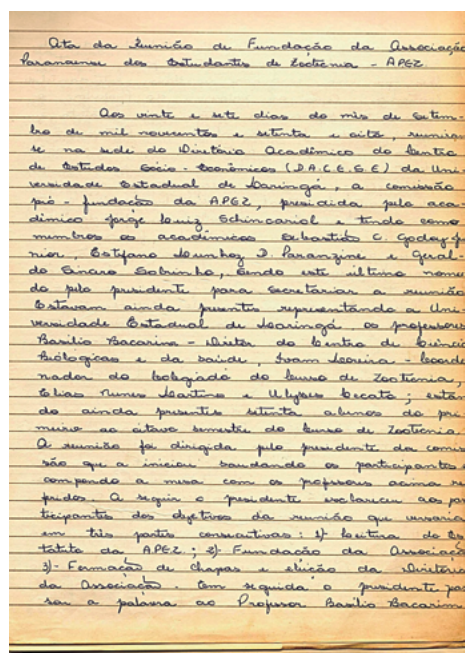 Ata da Reunião de Fundação da Associação
Paranaense dos Estudantes de Zootecnia - APEZ.
Aos vinte e sete dias do mês de Setem-
bro de mil novecentos e setenta e oito, reuniu-
se na sede do Diretório Acadêmico do Centro
de Estudos Sócio-Econômicos (D.A.C.E.S.E) da Uni-
versidade Estadual de Maringá, a comissão
pró-fundação da APEZ, presidida pelo aca-
dêmico Jorge Luiz Schincariol e tendo como
membros os acadêmicos Sebastião C. Godoy Jú
nior, Estefano Munhoz D. Paranzine e Geral-
do Sobrinho, sendo este último nomea
do pelo presidente para secretariar a reunião
Estavam ainda presentes representando a Uni
versidade Estadual de Maringá, os professores
Basílio Bacarin - Diretor do Centro de Ciência
Biológicas e da saúde, Ivam Moreira - Coorde
nador do Colegiado do Curso de Zootecnia,
Elias Nunes Martins e Ulysses Cecato; estan
do ainda presentes setenta alunos do pri
meiro ao oitavo semestre do Curso de Zootecnia.
A reunião foi dirigida pelo presidente da comis
são que a iniciou saudando os participantes e
compondo a mesa com os professores acima re
feridos. A seguir o presidente esclareceu aos par
ticipantes dos objetivos da reunião que versaria
em três partes consecutivas: 1)- Leitura do Es
tatuto da APEZ; 2)- Fundação da Associaçã
3)- Formação de chapas e eleição da Diretoria
da Associação. Em seguida o presidente pas
sou a palavra ao Professor Basílio Bacarin